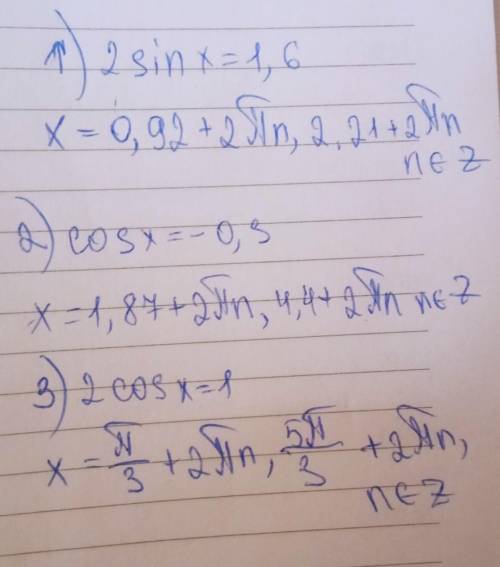 1) 2 sin x = 1,6
x = 0,92 + 2πn, 2,21 + 2πn
n ∈ Z
2) cos x = -0,3
x = 1,87 + 2πn, 4,4 + 2πn n ∈ Z
3) 2 cos x = 1
x = π/3 + 2πn, 5π/3 + 2πn,
n ∈ Z